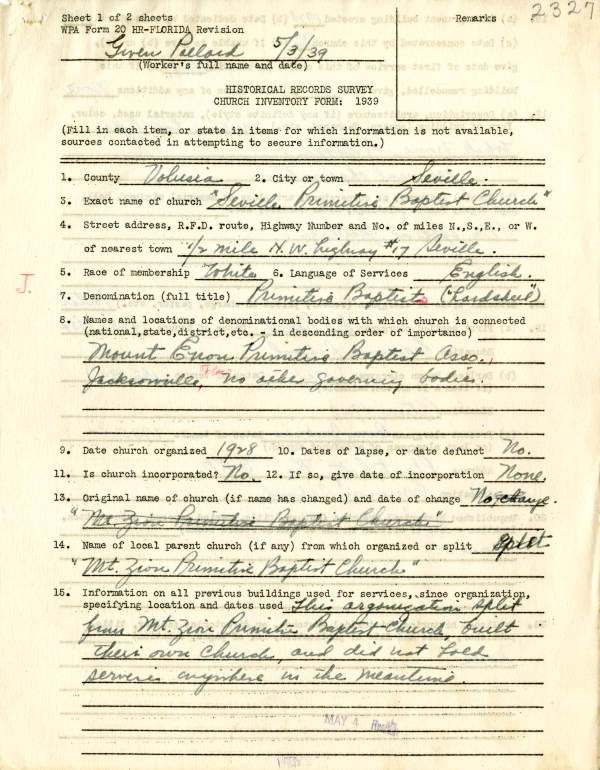 Sheet 1 of 2 sheets
Remarks
2327
WPA Form 20 HR-FLORIDA Revision
Gwen Pollard 5/3/39
(Worker's full name and date)
HISTORICAL RECORDS SURVEY
CHURCH INVENTORY FORM: 1939
(Fill in each item, or state in items for which information is not available,
sources contacted in attempting to secure information.)
1. County Volusia 2. City or town Seville.
3. Exact name of church "Seville Primitive Baptist Church"
4. Street address, R.F.D. route, Highway Number and No. of miles N.,S.,E., or W.
of nearest town 1/2 mile N.W. highway #17 Seville.
5. Race of membership White 6. Language of Services English.
J.
7. Denomination (full title) Primitive Baptist ("Hardshell")
8. Names and locations of denominational bodies with which church is connected
(national,state,district,etc. - in descending order of importance)
Mount Enon Primitive Baptist Asso.,
Jacksonville, Fla. No other governing bodies.
9. Date church organized 1928 10. Dates of lapse, or date defunct No.
11. Is church incorporated? No. 12. If so, give date of incorporation None.
13. Original name of church (if name has changed) and date of change No change.
"Mt. Zion Primitive Baptist Church"
14. Name of local parent church (if any) from which organized or split Split
"Mt. Zion Primitive Baptist Church"
15. Information on all previous buildings used for services, since organization,
specifying location and dates used This organization split
from Mt. Zion Primitive Baptist Church, built
their own church, and did not hold
services anywhere in the meantime.
MAY 4